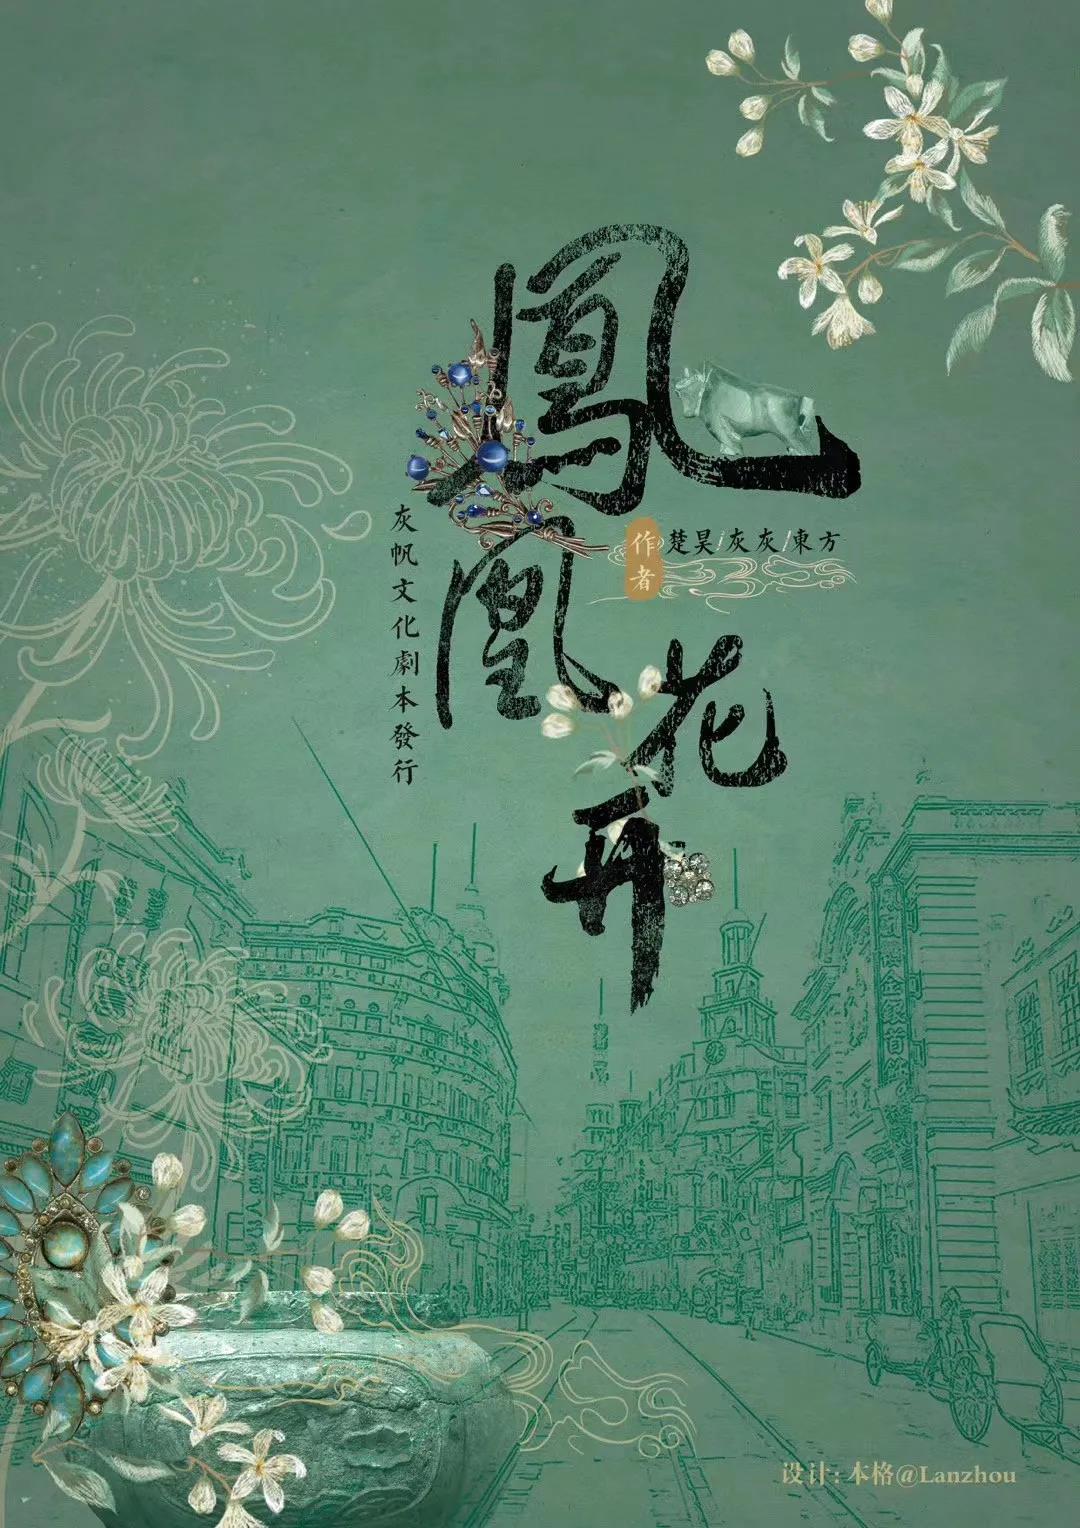 鳳凰花开
灰帆文化劇本發行
作者
楚昊/灰灰/東方
设计:本格@Lanzhou